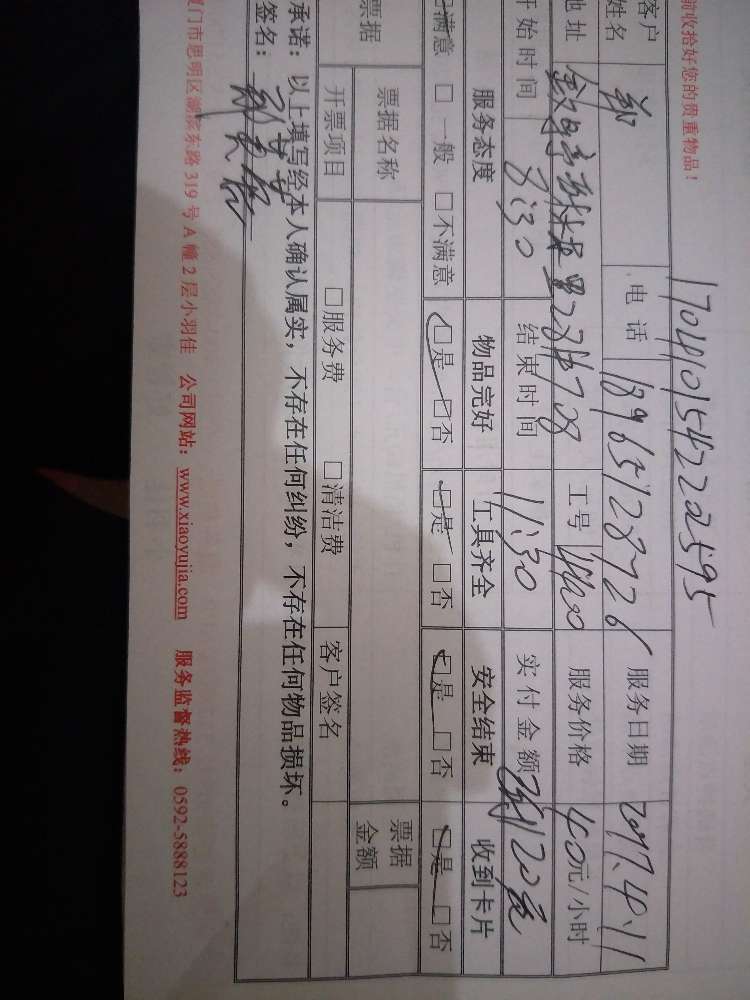 前收拾好您的贵重物品！
170410154222595
客户姓名 郑 电话 18965128726 服务日期 2017.4.11
地址 2号708 工号 服务价格 40元/小时
开始时间 8:30 结束时间 11:30 实付金额 120元
服务态度 物品完好 工具齐全 安全结束 收到卡片
满意 □ 一般 □不满意 □是 □否 □是 □否 □是 □否 □是 □否
票据 票据名称 票据金额
开票项目 □服务费 □清洁费 客户签名
承诺：以上填写经本人确认属实，不存在任何纠纷，不存在任何物品损坏。
签名：
厦门市思明区湖滨东路 319 号 A 幢 2 层小羽佳 公司网站：www.xiaoyujia.com 服务监督热线：0592-5888123